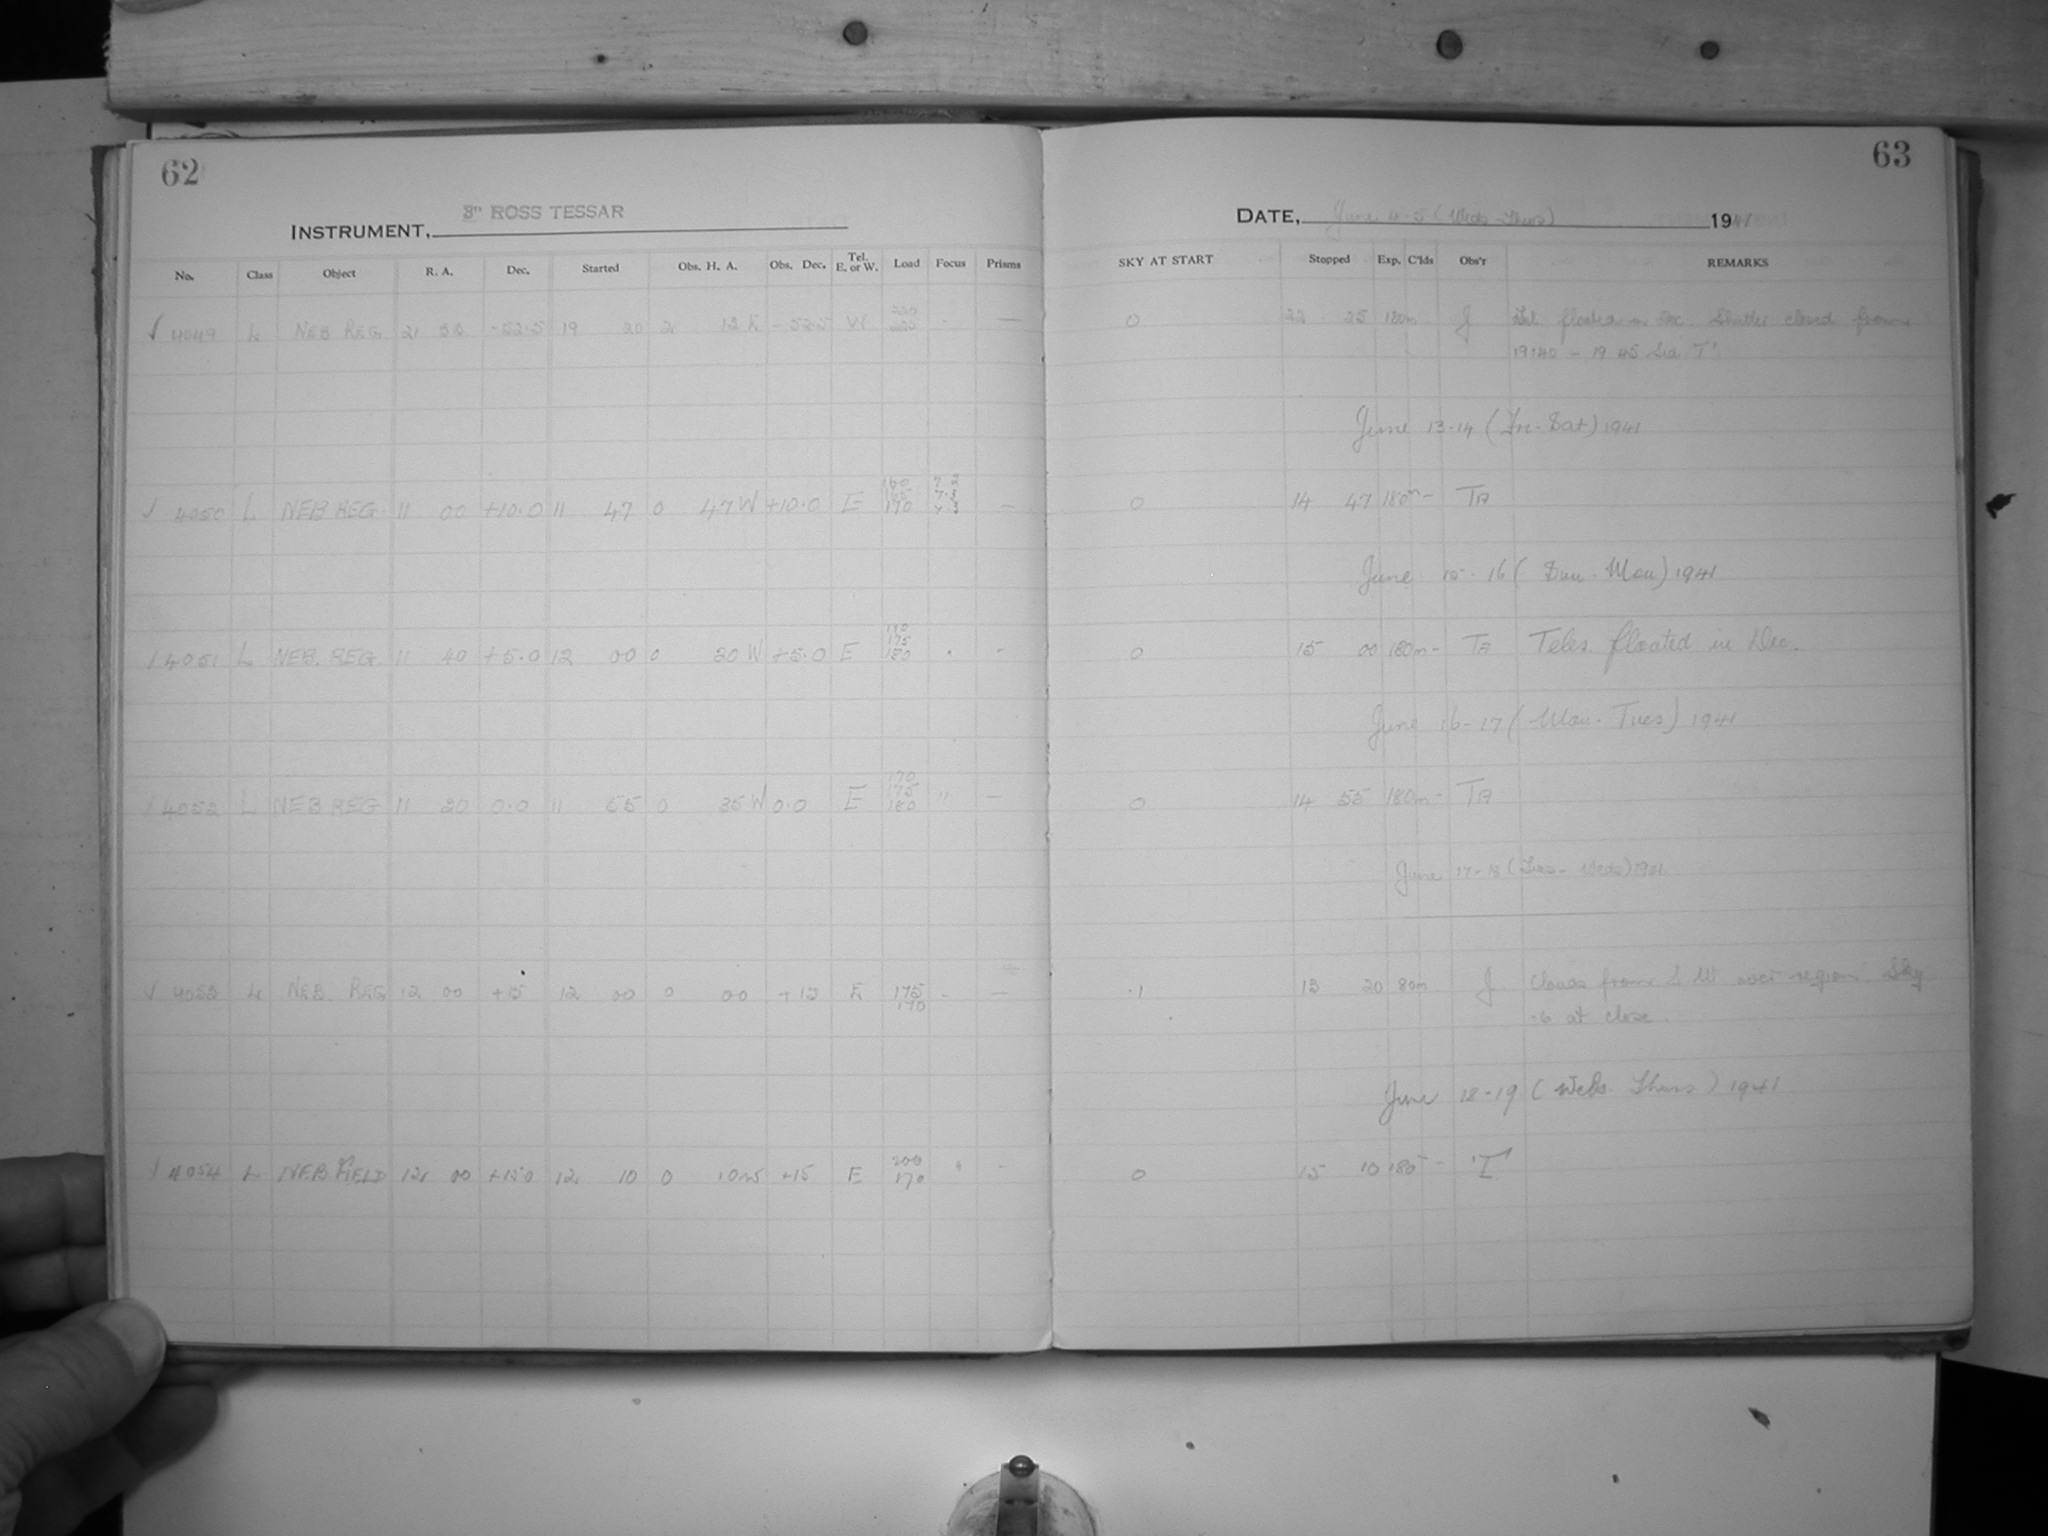 62
3" ROSS TESSAR
INSTRUMENT,
No. Class Object R. A. Dec. Started Obs. H. A. Obs. Dec. Tel. E. or W. Load Focus Prisms
√ 4049 L NEB REG 21 32 -52.5 19 20 2 12 E -52.5 W 220 225 - —
√ 4050 L NEB REG. 11 00 +10.0 11 47 0 47 W +10.0 E 160 165 170 7.2 7.3 7.3 —
√ 4051 L NEB. REG. 11 40 +5.0 12 00 0 20 W +5.0 E 175 180 . -
√ 4052 L NEB REG 11 20 0.0 11 55 0 35 W 0.0 E 170 175 180 " —
√ 4053 L NEB. REG 12 00 +15 12 00 0 00 +15 E 175 170 - —
√ 4054 L NEB. FIELD 12 00 +15.0 12 10 0 10 W +15 E 200 170 " -
63
DATE, June 4-5 (Weds-Thurs) 1941
SKY AT START Stopped Exp. C'lds Obs'r REMARKS
0 22 25 180m J Tel. floated in Dec. Shutter closed from
19:40 - 19 45 Sid. T.
June 13-14 (Fri-Sat) 1941
0 14 47 180m - TA
June 15-16 (Sun-Mon) 1941
0 15 00 180m - TA Teles. floated in Dec.
June 16-17 (Mon-Tues) 1941
0 14 55 180m - TA
June 17-18 (Tues-Weds) 1941
-1 13 20 80m J Clouds from S W over region. Sky
-6 at close.
June 18-19 (Weds. Thurs) 1941
0 15 10 180 -